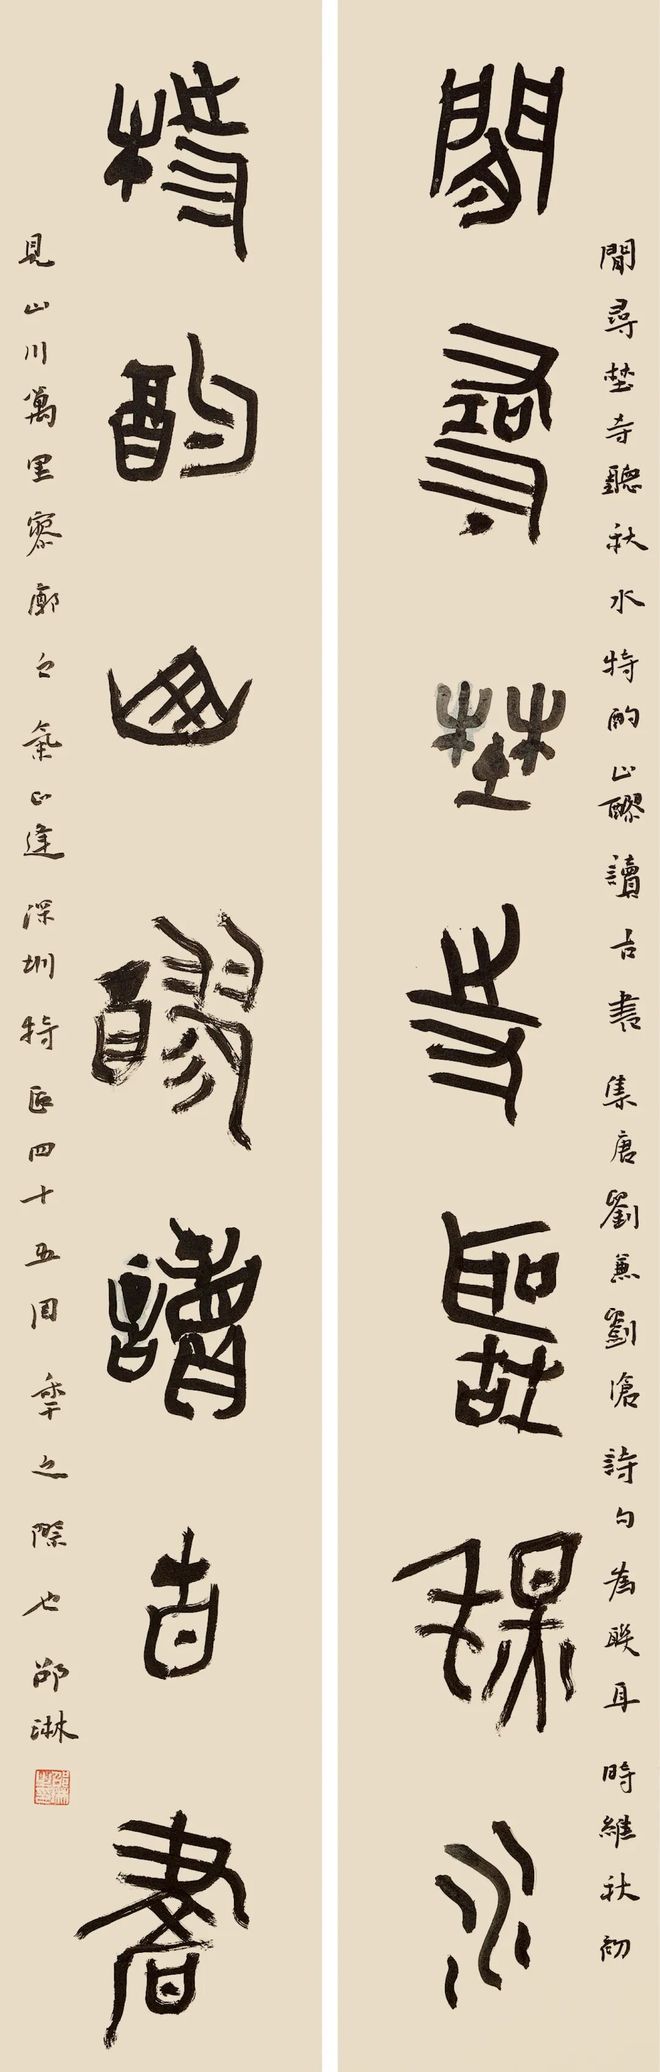 閒尋埜寺聽秋水
特酌山醪讀古書
閒尋埜寺聽秋水特酌山醪讀古書集唐劉兼劉滄詩句為聯耳時維秋初
見山川萬里寥廓之氣正逢深圳特區四十五周季之際也邵淋